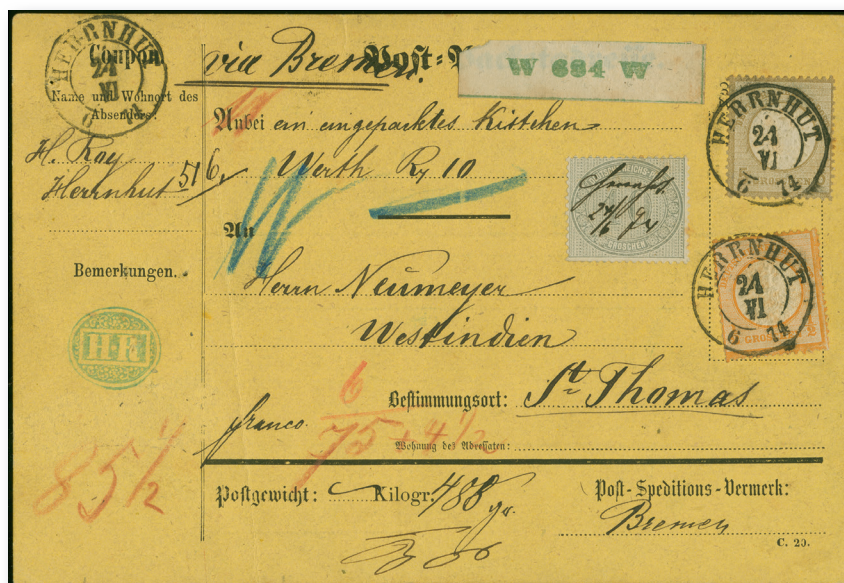 HERRNHUT
21
VI
6 74
Coupon.
Name und Wohnort des
Absenders:
H. Roy
Herrnhut 51
Bemerkungen.
HR
85 1/2
via Bremen.
Post=
W 684 W
Anbei ein eingepacktes Kistchen
Werth Rℳ 10
An
Herrn Neumeyer
Westindien
Bestimmungsort: St Thomas
franco
6
75 4 1/2
Wohnung des Adressaten:
Postgewicht: Kilogr: 488 gr.
Post-Speditions-Vermerk:
Bremen
C. 20.
GROSCHEN
HERRNHUT
21
VI
6 74
HERRNHUT
21
VI
6 74